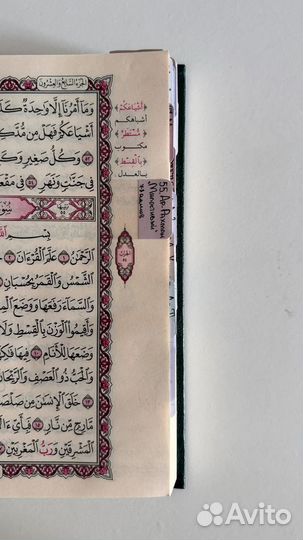 الجزء السابع والعشرون
وَمَا أَمْرُنَا إِلَّا وَاحِدَةٌ
أَشْيَاعَكُمْ فَهَلْ مِن مُّدَّكِرٍ
وَكُلُّ صَغِيرٍ
فِي جَنَّٰتٍ وَنَهَرٍ ٥٤ فِي
بِسْمِ
ٱلرَّحْمَٰنُ ١ عَلَّمَ ٱلْقُرْءَانَ ٢
ٱلشَّمْسُ وَٱلْقَمَرُ بِحُسْبَانٍ
وَٱلسَّمَآءَ رَفَعَهَا وَوَضَعَ
وَأَقِيمُوا۟ ٱلْوَزْنَ بِٱلْقِسْطِ وَلَا
وَضَعَهَا لِلْأَنَامِ ١٠ فِيهَا
وَٱلْحَبُّ ذُو ٱلْعَصْفِ وَٱلرَّيْحَانُ
خَلَقَ ٱلْإِنسَٰنَ مِن
مَّارِجٍ مِّن نَّارٍ ١٥ فَبِأَيِّ
ٱلْمَشْرِقَيْنِ وَرَبُّ ٱلْمَغْرِبَيْنِ
﴿أَشْيَاعَكُمْ﴾
أشباهكم
﴿مُّسْتَطَرٌ﴾
مكتوب
﴿بِٱلْقِسْطِ﴾
بالعدل
55. Ар-Рахман
Милостивый
Avito